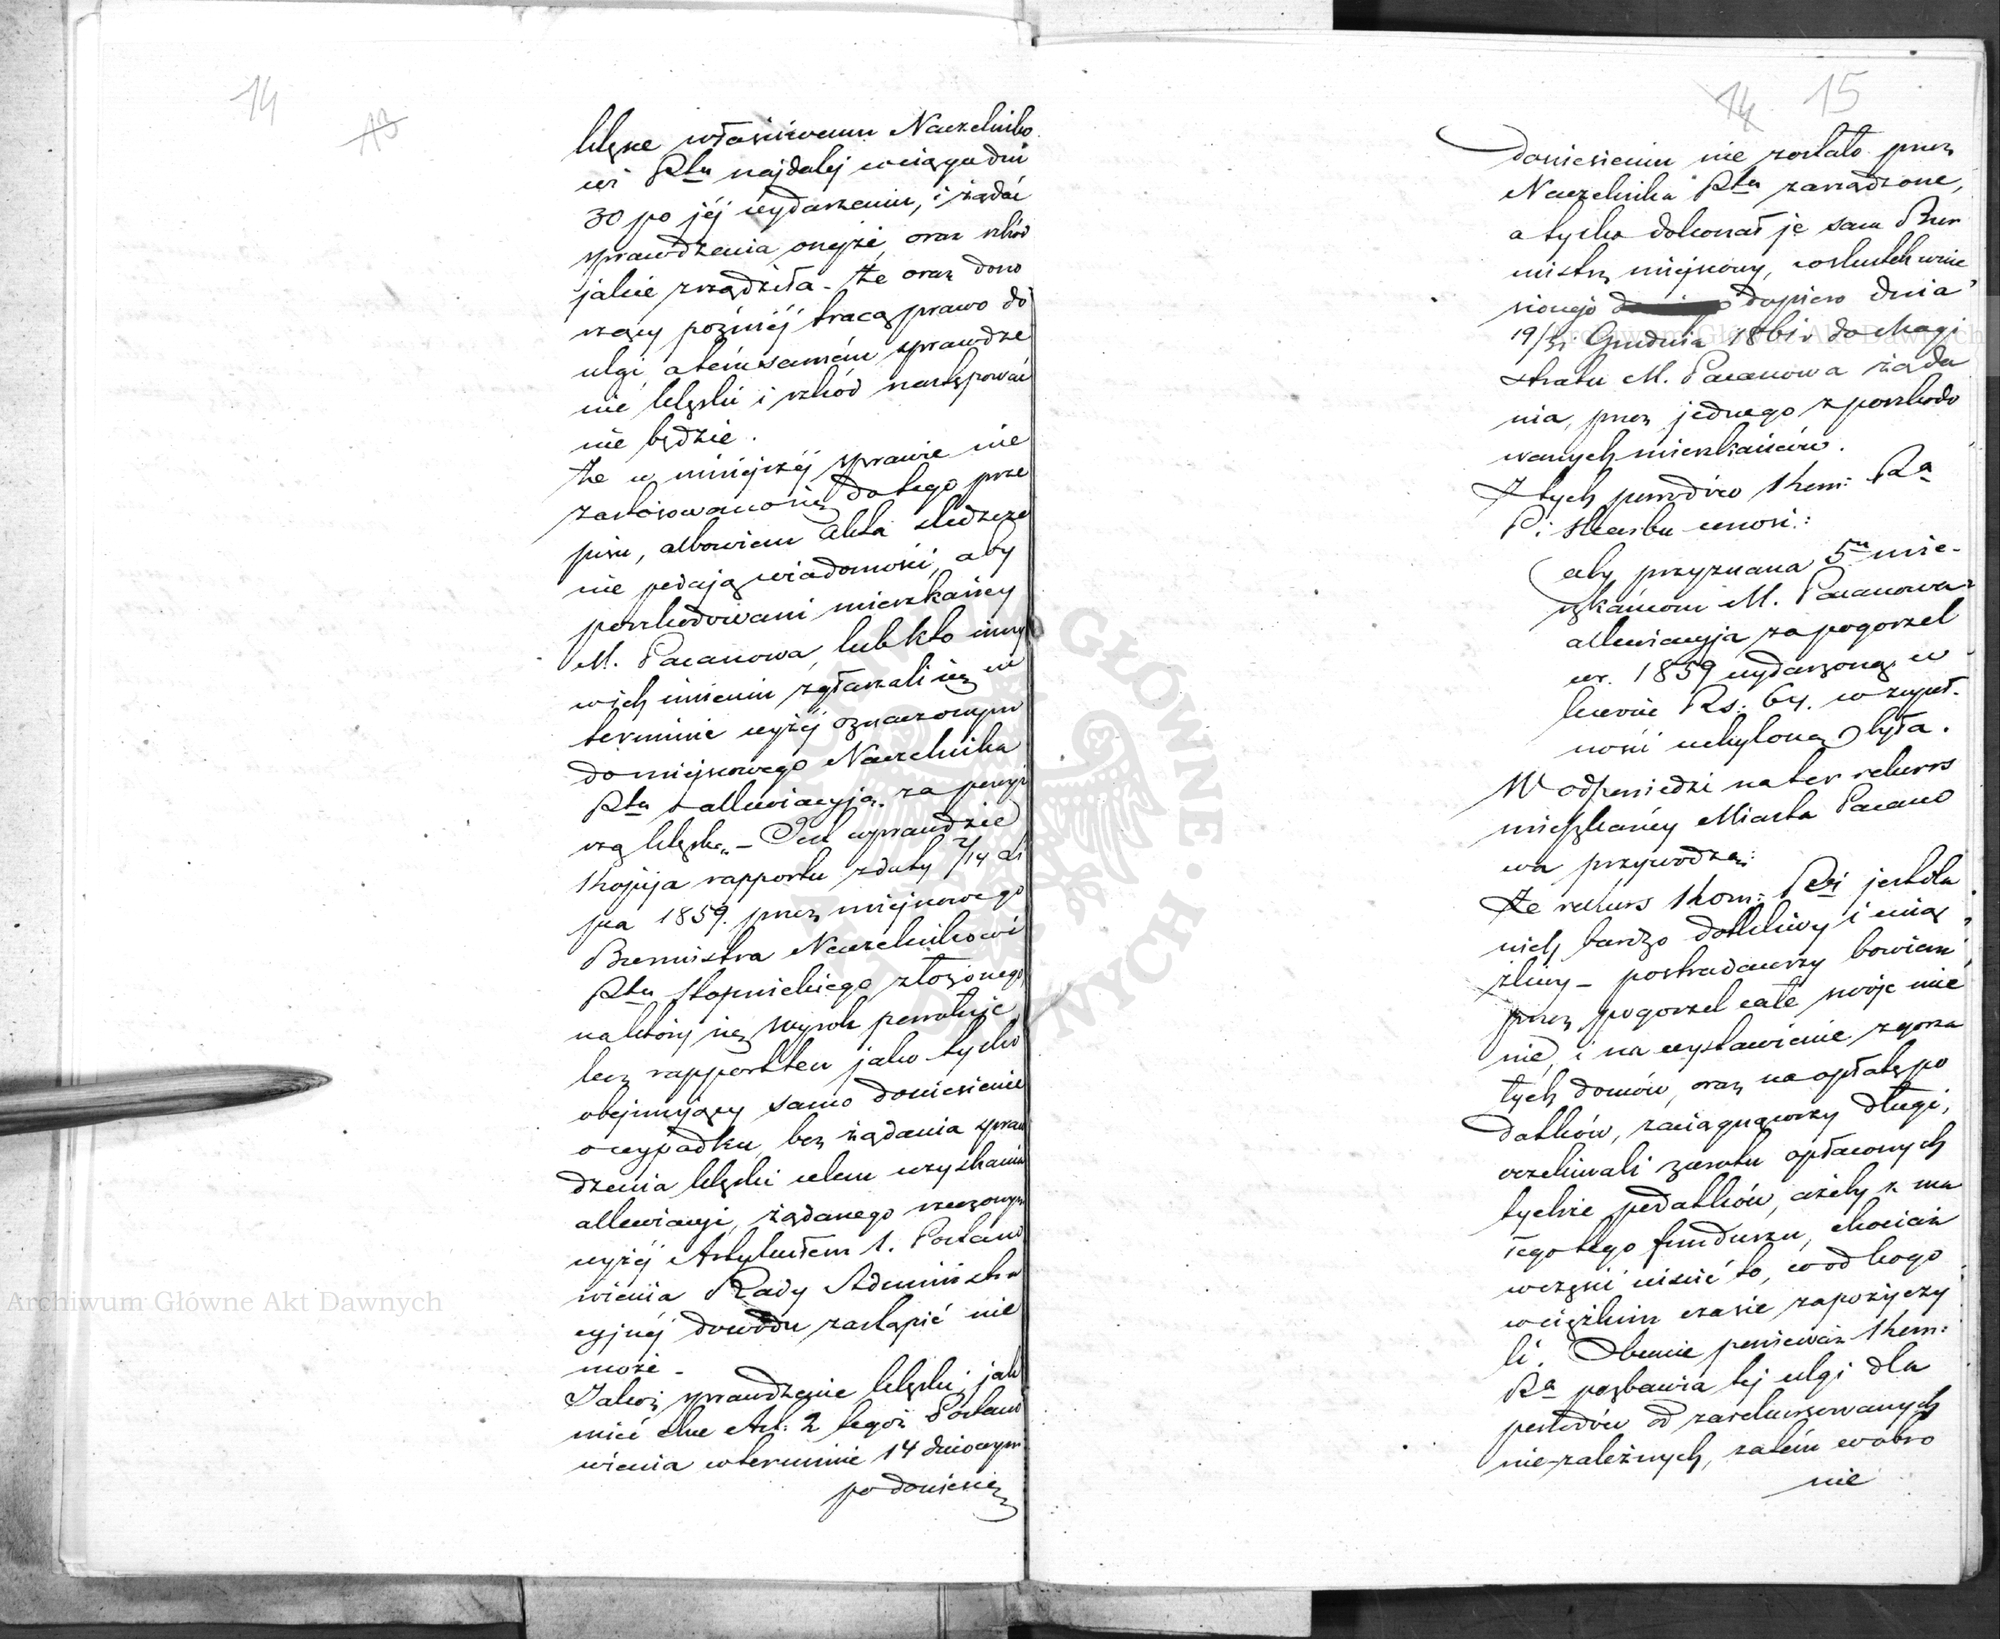 14
13
klęskę właściwemu Naczelniko
wi Ptu najdalej wciągu dni
30 po jéj wydarzeniu, i żądać
sprawdzenia onejże, oraz szkód
jakie zrządziła – że oraz dono
szący poźniéj tracą prawo do
ulgi a tém samém sprawdze
nie klęski i szkód następować
nie będzie.
że w niniejszéj sprawie nie
zastosowano się do tego prze
pisu, albowiem akta śledcze
nie podają wiadomości, aby
poszkodowani mieszkańcy
M. Pacanowa, lub kto inny
w ich imieniu zgłaszali się w
terminie wyżéj oznaczonym
do miejscowego Naczelnika
Ptu o allewiacyją za powyż
szą klęskę – Jest wprawdzie
Kopija rapportu z daty 2/14 Li
pca 1859. przez miejscowego
Burmistrza Naczelnikowi
Ptu Stopnickiego złożonego,
na który się wyrok powołuje,
lecz rapport ten jako tylko
obejmujący samo doniesienie
o wypadku bez żądania spraw
dzenia klęski celem uzyskania
allewiacyi, żądanego rzeczonym
wyżéj Artykułem 1. Postano
wienia Rady Administra
cyjnéj dowodu zastąpić nie
może –
Jakoż sprawdzenie klęski, jak
mieć chce Art: 2 tegoż Postano
wienia w terminie 14 dniowym
po doniesie
14 15
doniesieniu nie zostało przez
Naczelnika Ptu zarządzone,
a tylko dokonał je sam Bur
mistrz miejscowy, wskutek wnie
sionego dopiero dnia
19/31 Grudnia 1861 r. do Magi
stratu M. Pacanowa żąda
nia, przez jednego z poszkodo
wanych mieszkańców.
Z tych powodów Kom: Ra
P: i Skarbu wnosi:
aby przyznana 5u mie-
szkańcom M. Pacanowa
allewiacyja za pogorzel
w r. 1859 wydarzoną w
kwocie Rs: 64. w zupeł-
ności uchyloną była.
W odpowiedzi na ten rekurs
mieszkańcy Miasta Pacano
wa przywodzą:
że rekurs Kom: Rei jest dla
nich bardzo dotkliwy i ucią
żliwy – postradawszy bowiem
przez pogorzel całe swoje mie
nie, i na wystawienie zgorza
łych domów, oraz na opłatę po
datków, zaciągnąwszy długi,
oczekiwali zwrotu opłaconych
tychże podatków, ażeby z ma
łego tego funduszu, chociaż
w części uiścić to, co od kogo
w ciężkim czasie zapożyczy
li. Obecnie ponieważ Kom:
Ra pozbawia tej ulgi dla
powodów od zarekursowanych
niezależnych, zatém w obro
nie
Archiwum Główne Akt Dawnych
Archiwum Główne Akt Dawnych
ARCHIWUM GŁÓWNE AKT DAWNYCH